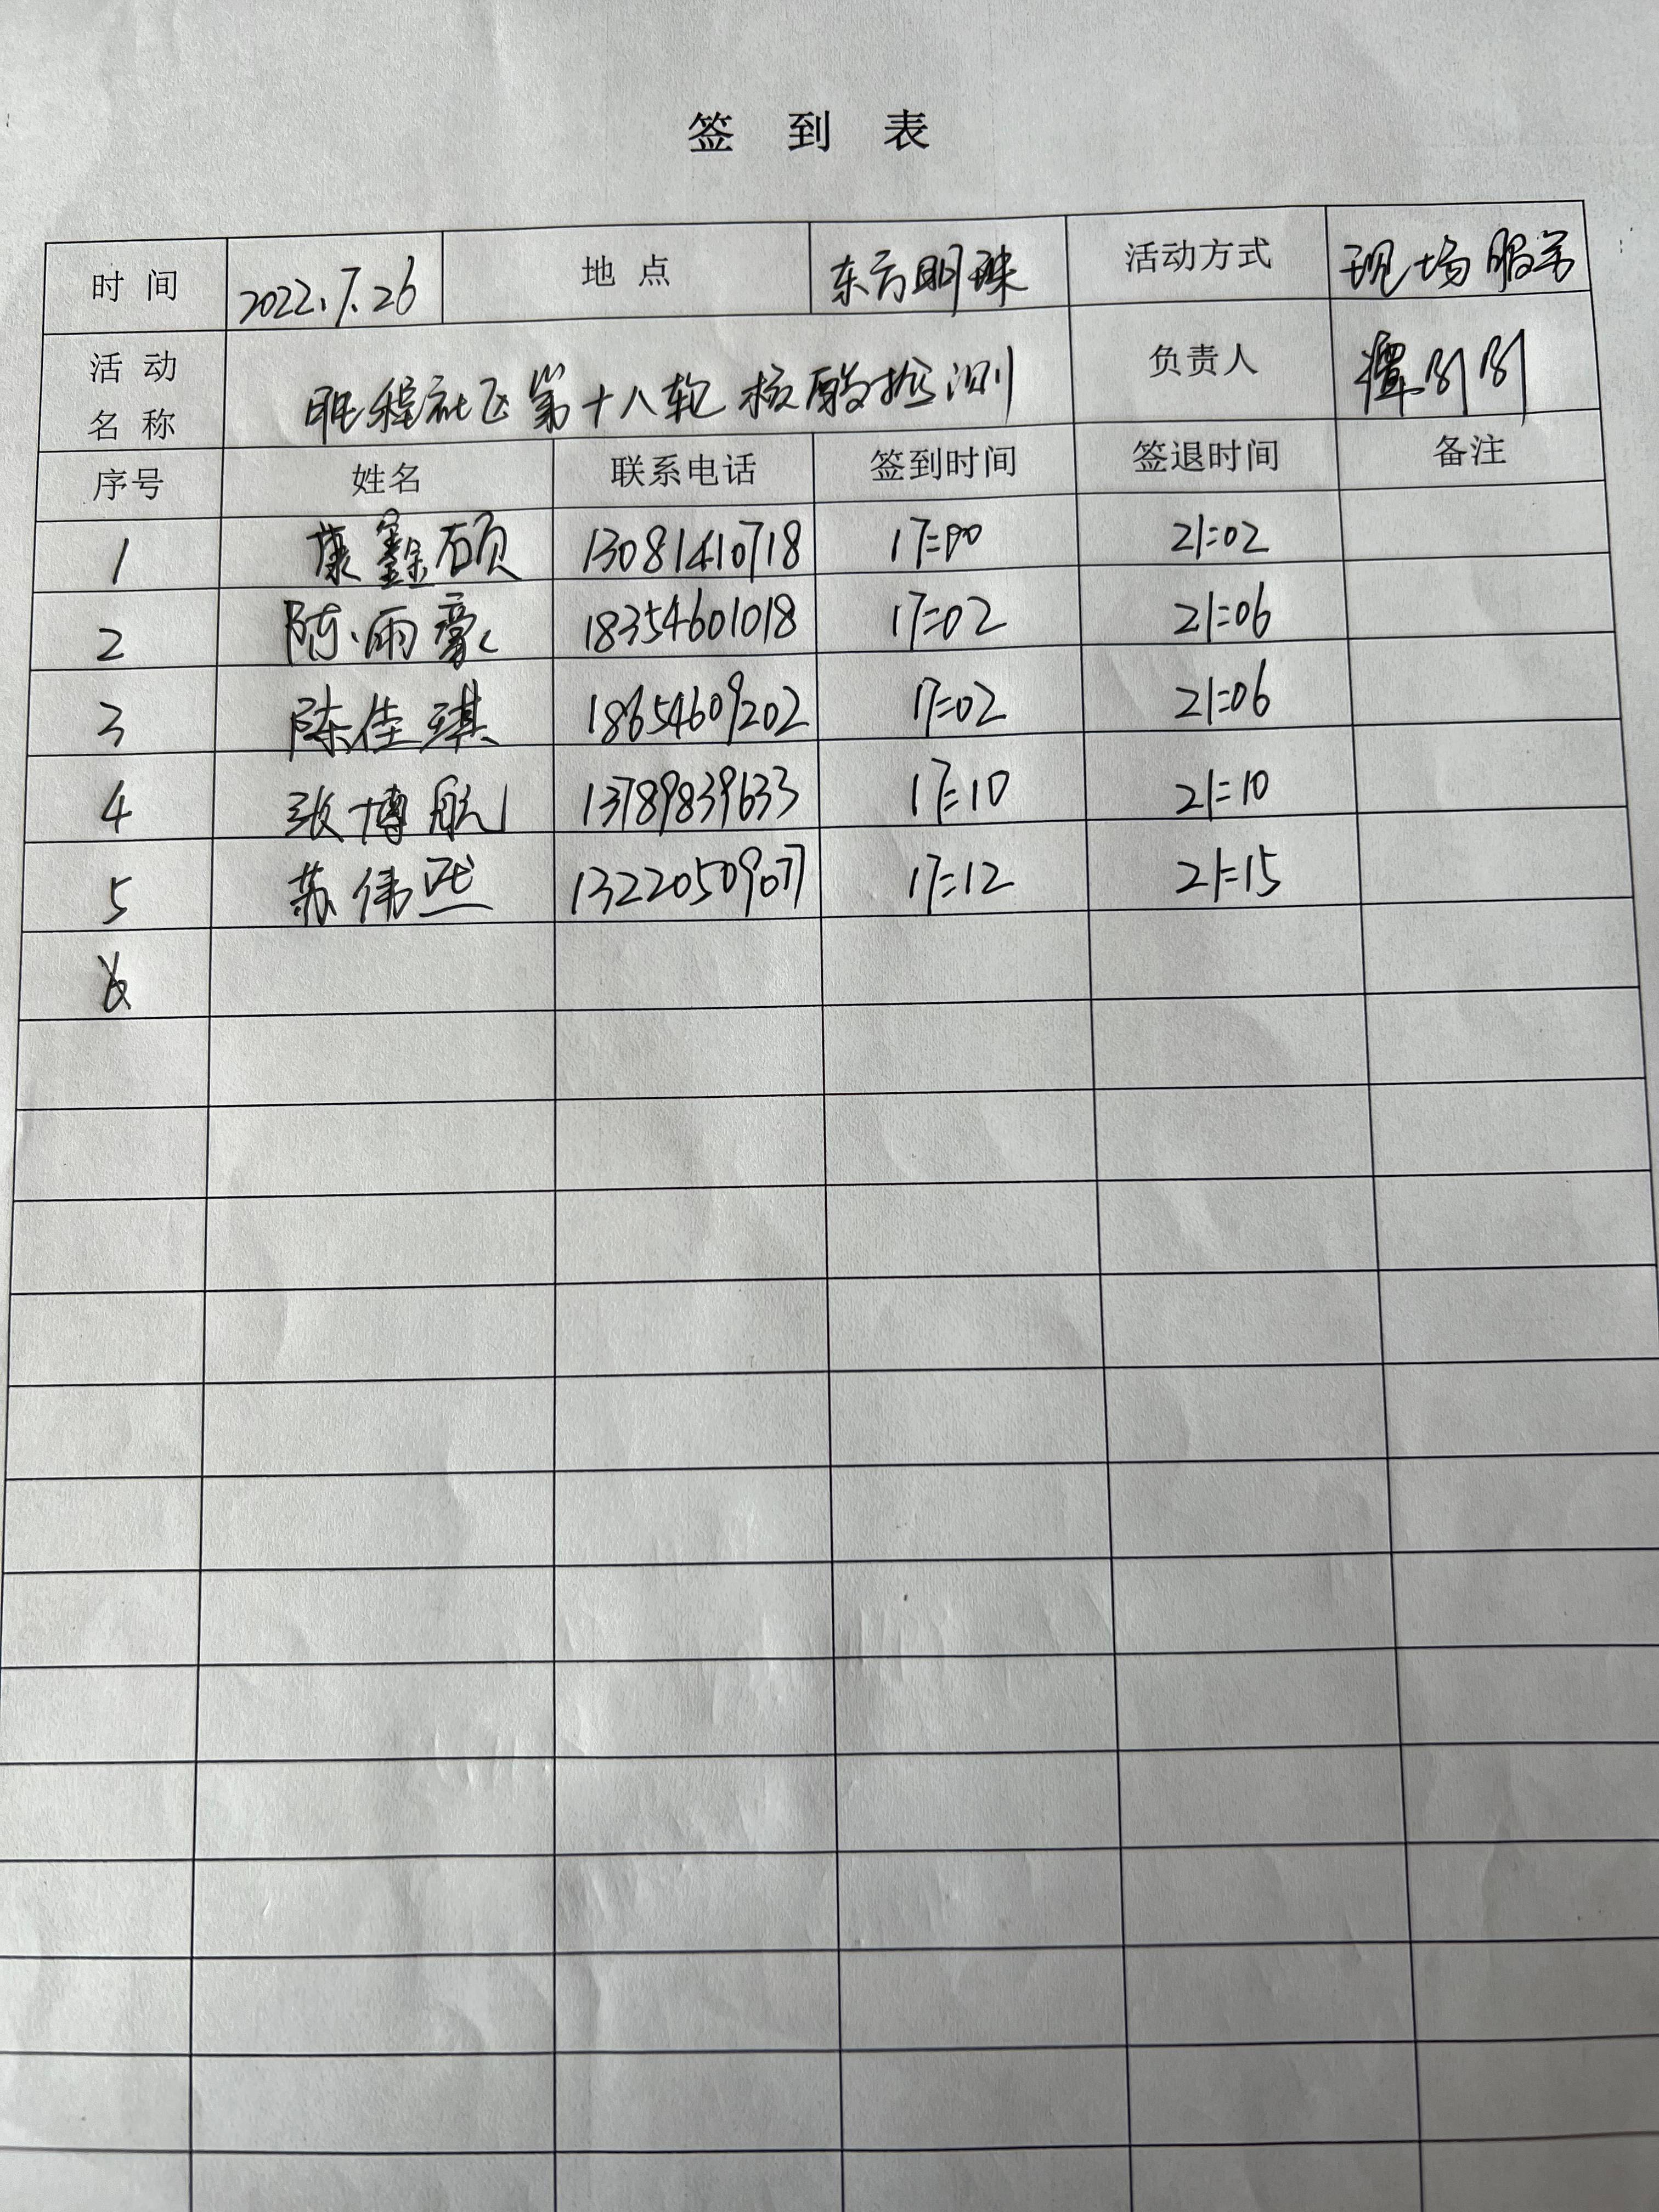 签 到 表
时 间 2022.7.26 地 点 东方明珠 活动方式 现场服务
活 动 名 称 社区第十八轮核酸检测 负责人
序号 姓名 联系电话 签到时间 签退时间 备注
1 康鑫硕 13081410718 17:00 21:02
2 陈雨豪 18354601018 17:02 21:06
3 陈佳琪 18654609202 17:02 21:06
4 张博航 13789839633 17:10 21:10
5 苏伟熙 13220509077 17:12 21:15